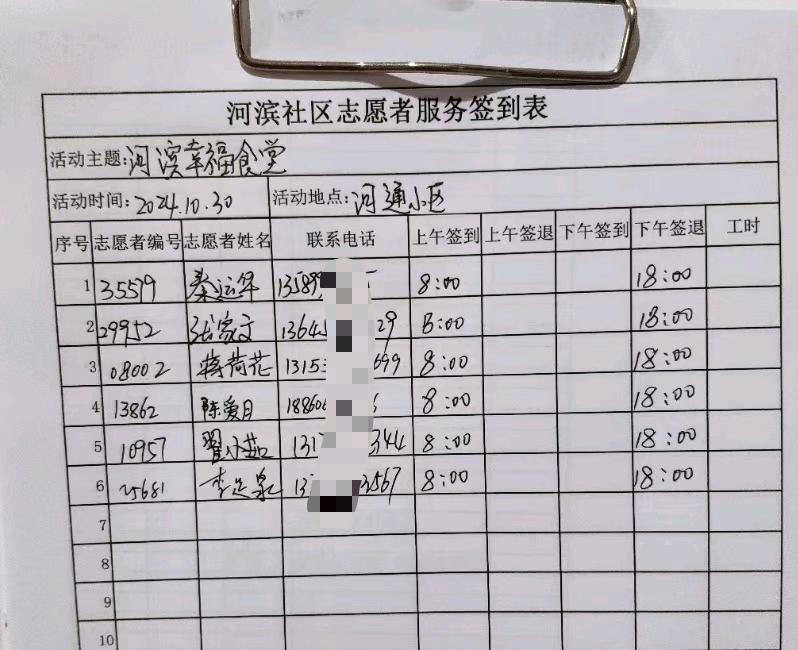 河滨社区志愿者服务签到表
活动主题:河滨幸福食堂
活动时间:2024.10.30 活动地点:河通小区
序号 志愿者编号 志愿者姓名 联系电话 上午签到 上午签退 下午签到 下午签退 工时
1 35579 秦运华 13589 8:00 18:00
2 29952 张家文 13645 29 8:00 18:00
3 08002 蒋荷花 1315 699 8:00 18:00
4 13862 陈爱月 18860 8:00 18:00
5 10957 翟小茹 131 344 8:00 18:00
6 25681 李足泉 13 3567 8:00 18:00
7
8
9
10